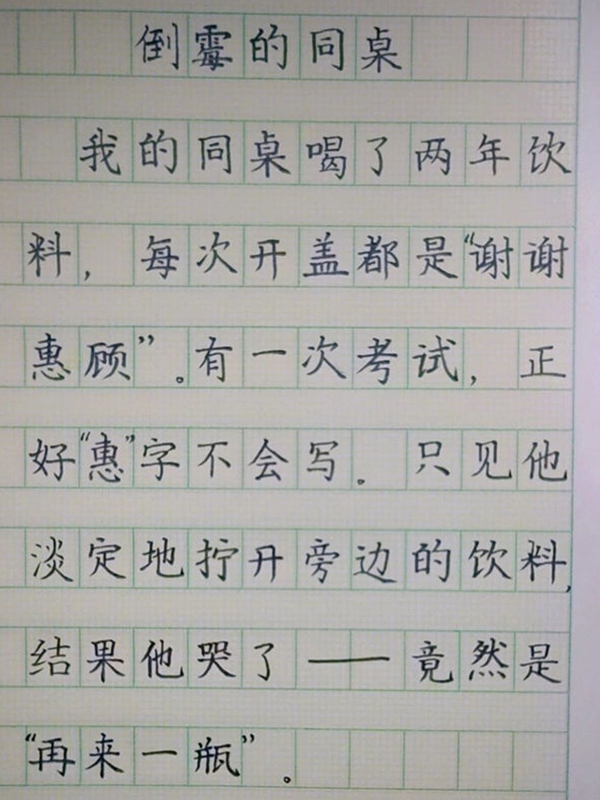 倒霉的同桌
我的同桌喝了两年饮
料，每次开盖都是“谢谢
惠顾”。有一次考试，正
好“惠”字不会写。只见他
淡定地拧开旁边的饮料，
结果他哭了——竟然是
“再来一瓶”。